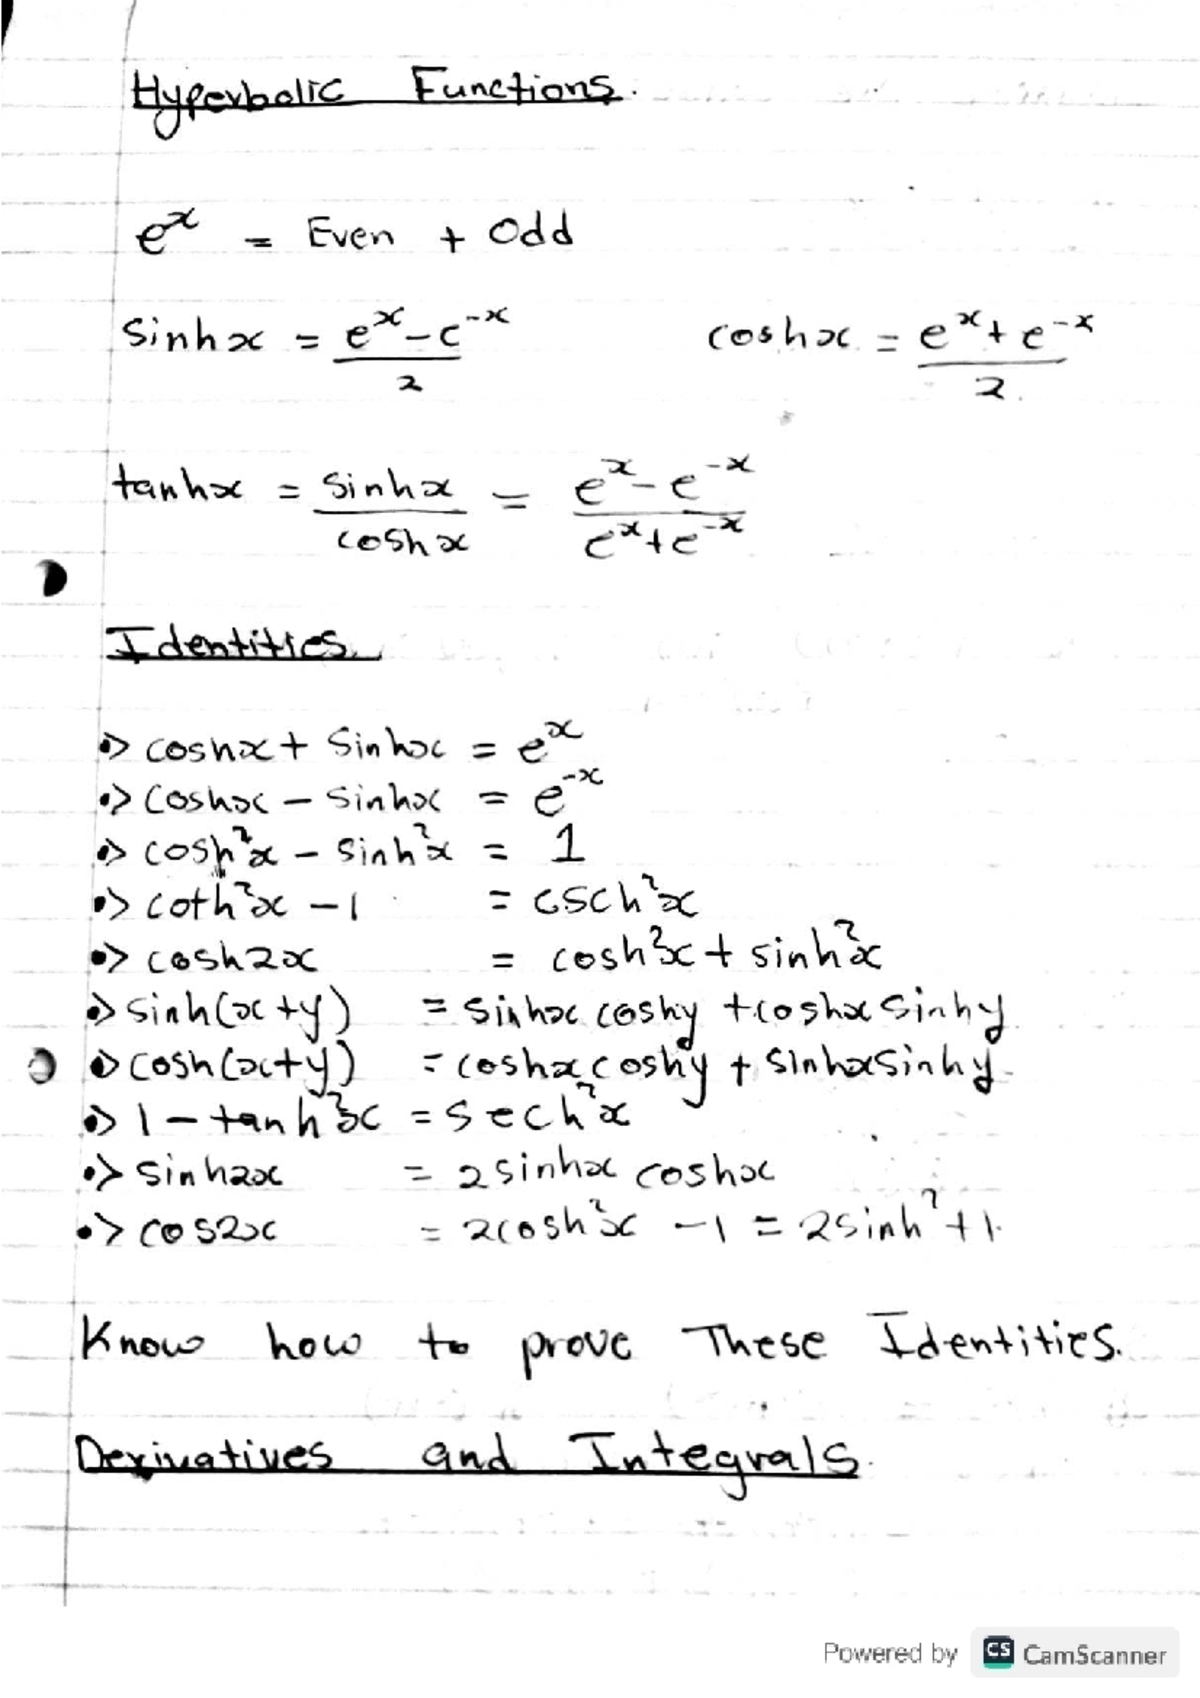 Hyperbolic Functions.
eˣ = Even + Odd
sinhx = (eˣ - e⁻ˣ)/2 coshx = (eˣ + e⁻ˣ)/2
tanhx = sinhx/coshx = (eˣ - e⁻ˣ)/(eˣ + e⁻ˣ)
Identities.
•> coshx + sinhx = eˣ
•> coshx - sinhx = e⁻ˣ
•> cosh²x - sinh²x = 1
•> coth²x - 1 = csch²x
•> cosh2x = cosh²x + sinh²x
•> sinh(x+y) = sinhx coshy + coshx sinhy.
•> cosh(x+y) = coshx coshy + sinhx sinhy.
•> 1 - tanh²x = sech²x
•> sinh2x = 2sinhx coshx
•> cos2x = 2cosh²x - 1 = 2sinh² + 1.
Know how to prove These Identities.
Derivatives and Integrals.
Powered by CS CamScanner